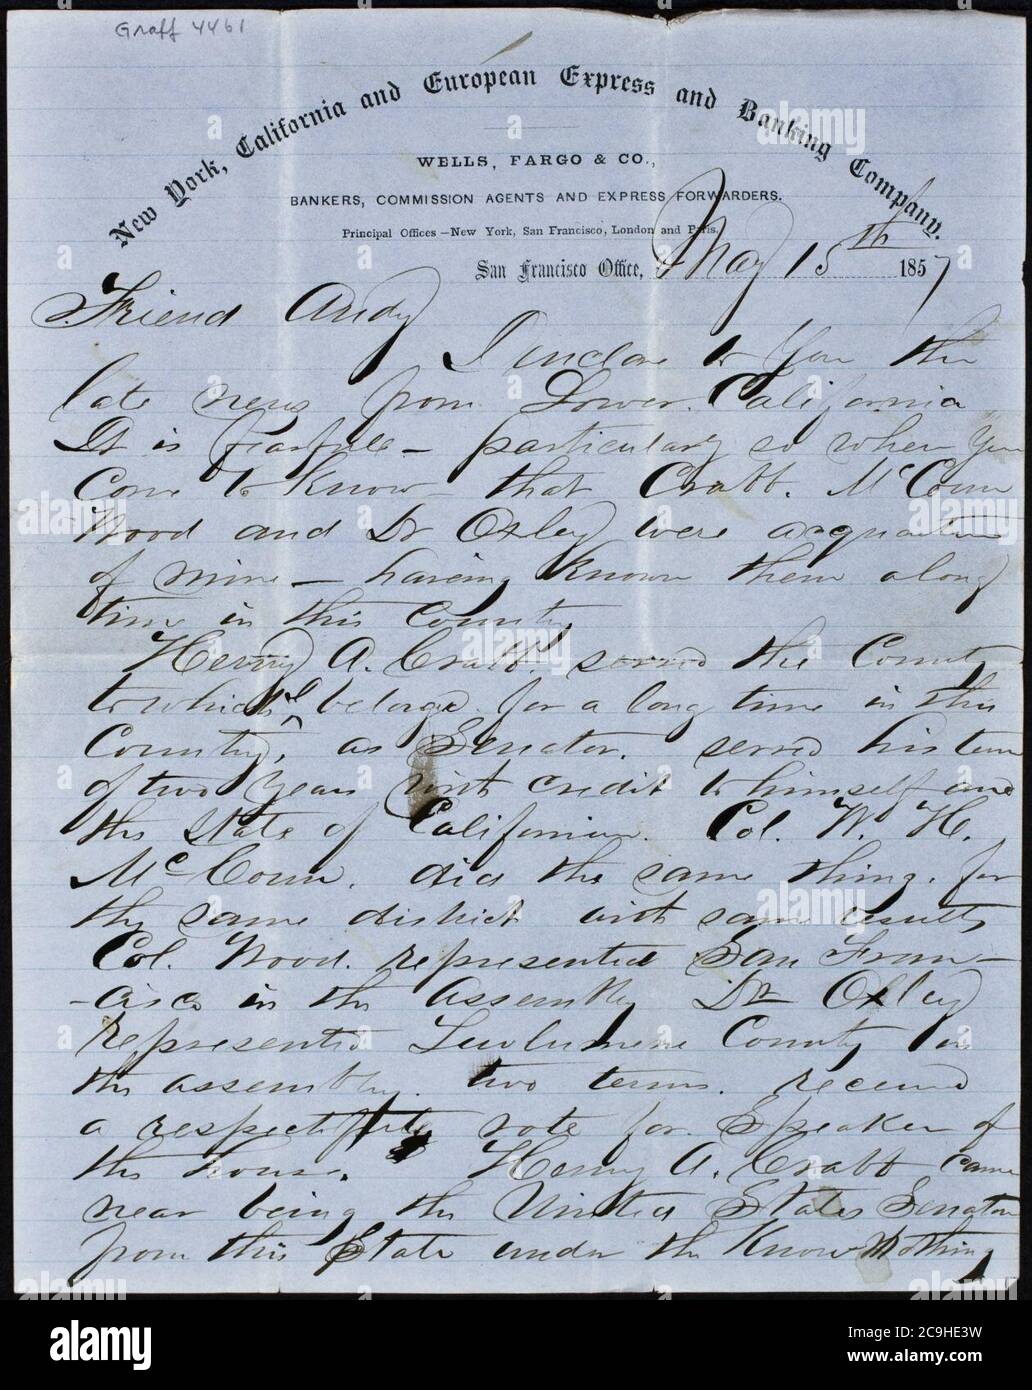 Graff 4461
New York, California and European Express and Banking Company.
WELLS, FARGO & CO.,
BANKERS, COMMISSION AGENTS AND EXPRESS FORWARDERS.
Principal Offices—New York, San Francisco, London and Paris.
San Francisco Office, May 15th 1857
Friend Andy
I enclose to You the
late news from Lower. California
It is fearfull — particularly so when You
Come to Know that Crabb. McCoun
Wood and Dr Oxley were
of mine — having Known them a long
time in this Country
Henry A. Crabb. served the County
to which I belong. for a long time in this
Country, as Senator. served his term
of two Years with credit to himself and
the State of California. Col. W. H.
McCoun. did the same thing. for
the same district with same results
Col. Wood. represented San Fran-
-cisco in the Assembly Dr Oxley
represented County in
the assembly. two terms. received
a vote for Speaker of
the house. Henry A. Crabb came
near being the United States Senator
from this State under the Know Nothing
alamy
Image ID: 2C9HE3W
www.alamy.com